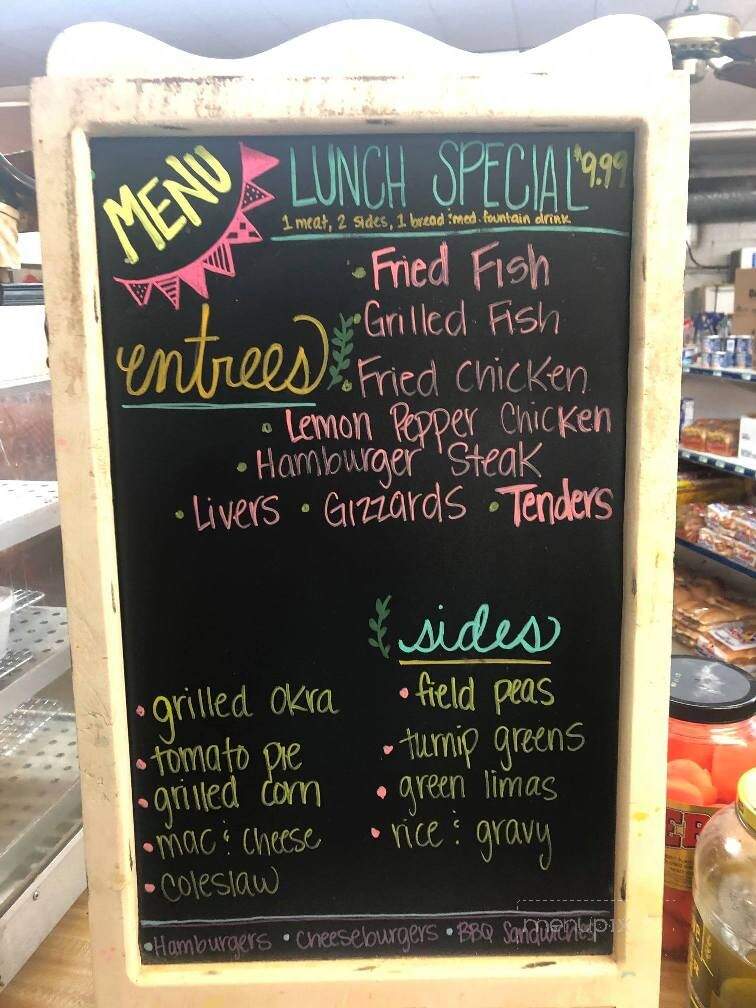 MENU
LUNCH SPECIAL $9.99
1 meat, 2 sides, 1 bread & med. fountain drink
entrees
• Fried Fish
• Grilled Fish
• Fried Chicken
• Lemon Pepper Chicken
• Hamburger Steak
• Livers • Gizzards • Tenders
sides
• grilled okra
• tomato pie
• grilled corn
• mac & cheese
• coleslaw
• field peas
• turnip greens
• green limas
• rice & gravy
• Hamburgers • Cheeseburgers • BBQ Sandwiches
menupix